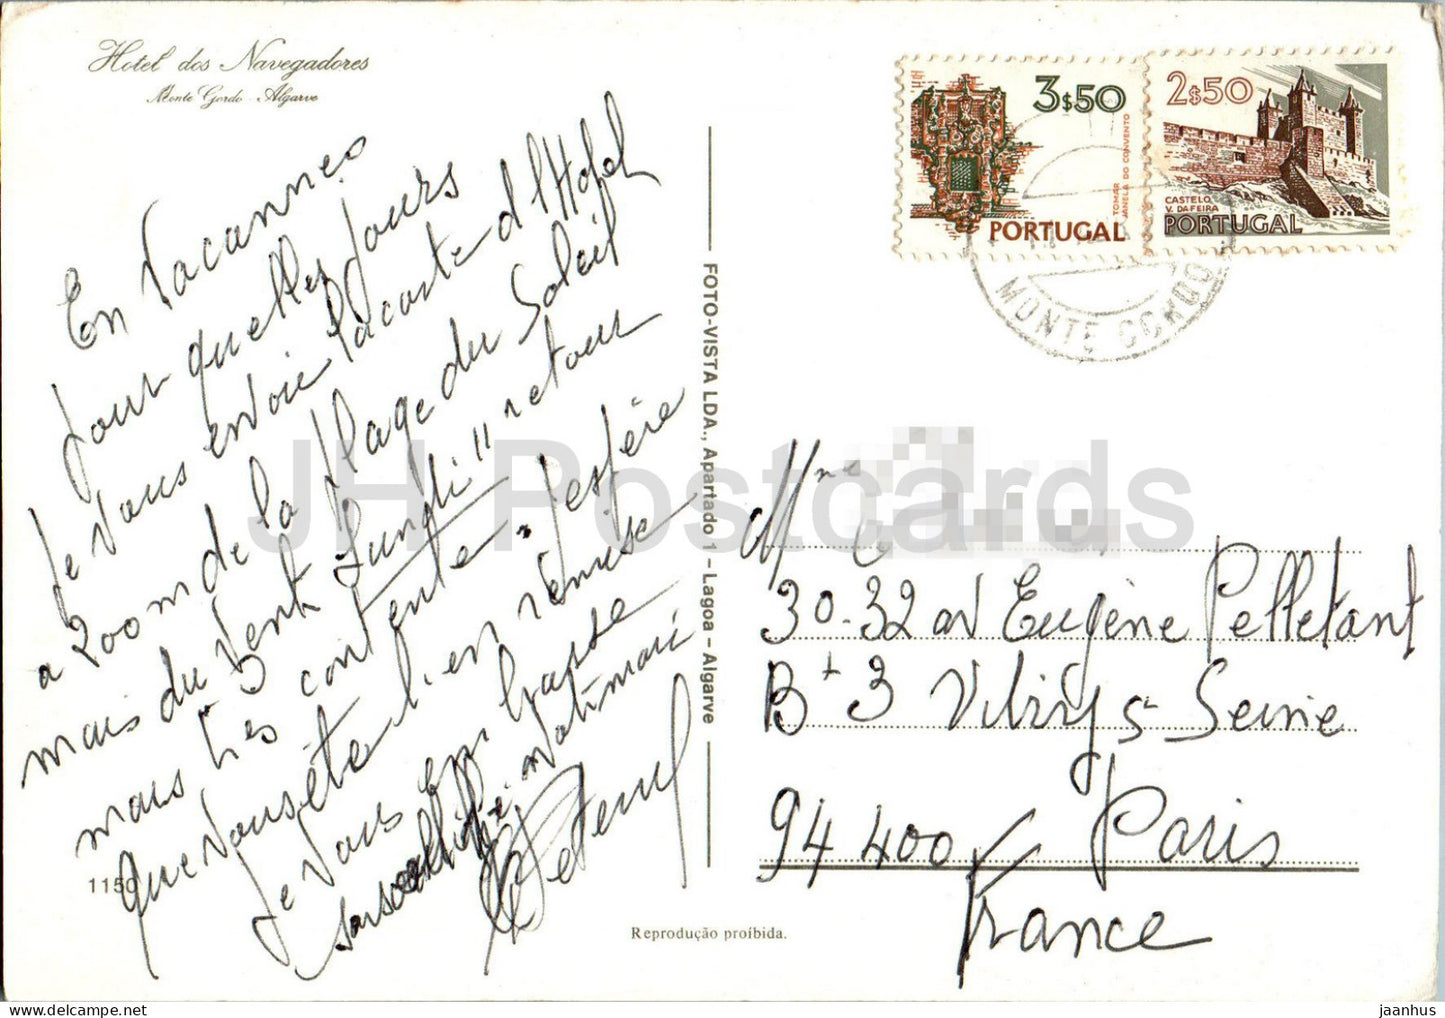 Hotel dos Navegadores
Monte Gordo - Algarve
En vacances
pour quelles jours
Je vous envoie la carte d l'Hotel
a 200m de la Plage du Soleil
mais du vent Lundi 11 retour
mais très contente. J'espère
que vous été bien remise
Je vous embrasse
1150
FOTO-VISTA LDA., Apartado 1 - Lagoa - Algarve
Reprodução proíbida.
3$50
TOMAR
JANELA DO CONVENTO
PORTUGAL
2$50
CASTELO
V. DA FEIRA
PORTUGAL
MONTE GORDO
Mme
30-32 av Eugène Pelletant
Bt 3 Vitry s Seine
94 400 Paris
France
JH Postcards
jaanhus